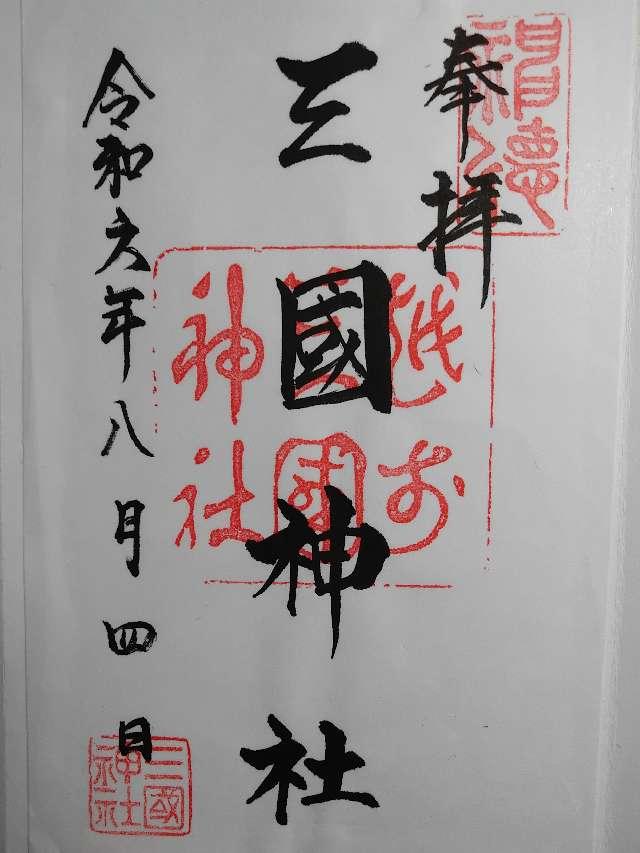 奉拝
三國神社
令和六年八月四日
越前
三國
神社
三國
神社